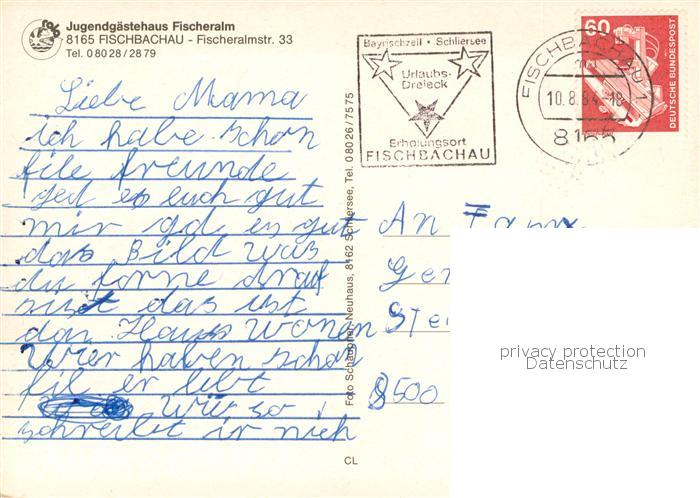 Jugendgästehaus Fischeralm
8165 FISCHBACHAU - Fischeralmstr. 33
Tel. 0 80 28 / 28 79
Bayrischzell • Schliersee
Urlaubs-
Dreieck
Erholungsort
FISCHBACHAU
FISCHBACHAU 1
10.8.84-18
8165
60
DEUTSCHE BUNDESPOST
Liebe Mama
ich habe schon
file freunde
ged es euch gut
mir gd es gut
das Bild was
du forne drauf
sist das ist
das Haus wonen
Wier haben schon
fil er lebt
wie so
schreibt ir nich
An Fam.
Ge
Ste
8500
Foto Schaupner, Neuhaus, 8162 Schliersee, Tel. 0 80 26 / 75 75
CL
privacy protection
Datenschutz